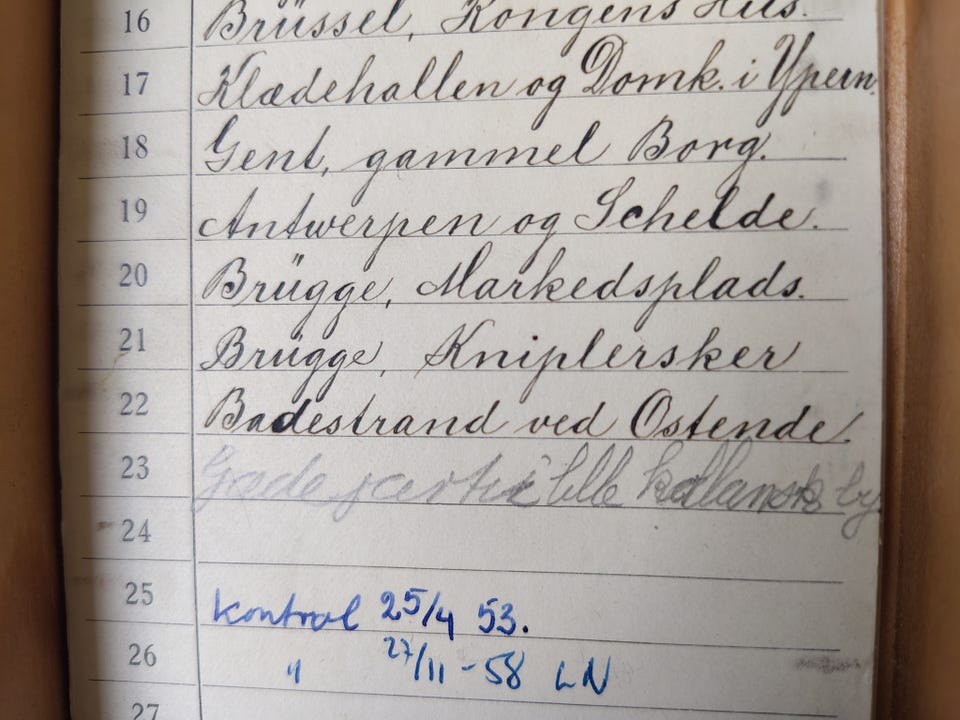 16 Brüssel, Kongens Hus.
17 Klædehallen og Domk. i Ypern.
18 Gent, gammel Borg.
19 Antwerpen og Schelde.
20 Brügge, Markedsplads.
21 Brügge, Kniplersker
22 Badestrand ved Ostende.
23 Gade parti i lille hollansk by
24
25 kontrol 25/4 53.
26 " 27/11 - 58 LN
27